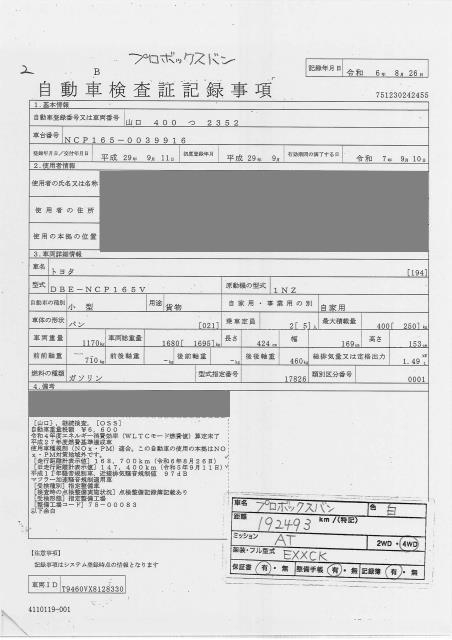 プロボックスバン
2
B
記録年月日 令和 6年 8月 26日
自動車検査証記録事項
751230242455
1.基本情報
自動車登録番号又は車両番号 山口 400 つ 2352
車台番号 NCP165-0039916
登録年月日/交付年月日 平成 29年 9月 11日 初度登録年月 平成 29年 9月 有効期間の満了する日 令和 7年 9月 10日
2.使用者情報
使用者の氏名又は名称
使用者の住所
使用の本拠の位置
3.車両詳細情報
車名 トヨタ [194]
型式 DBE-NCP165V 原動機の型式 1NZ
自動車の種別 小型 用途 貨物 自家用・事業用の別 自家用
車体の形状 バン [021] 乗車定員 2[ 5]人 最大積載量 400[ 250]kg
車両重量 1170kg 車両総重量 1680[ 1695]kg 長さ 424cm 幅 169cm 高さ 153cm
前前軸重 710kg 前後軸重 -kg 後前軸重 -kg 後後軸重 460kg 総排気量又は定格出力 1.49
燃料の種類 ガソリン 型式指定番号 17826 類別区分番号 0001
4.備考
[山口],継続検査,[OSS]
自動車重量税額 ¥6,600
令和4年度エネルギー消費効率(WLTCモード燃費値)算定未了
平成27年度燃費基準達成車
使用車種規制(NOx・PM)適合,この自動車の使用の本拠はNO
x・PM対策地域外です。
[走行距離計表示値]168,700km(令和6年8月26日)
[旧走行距離計表示値]147,400km(令和5年9月11日)
平成11年騒音規制車,近接排気騒音規制値 97dB
マフラー加速騒音規制適用車
[受検種別]指定整備車
[検査時の点検整備実施状況]点検整備記録簿記載あり
[受検形態]指定整備工場
[整備工場コード]75-00083
以下余白
車名 プロボックスバン 色 白
距離 192493 km/(特記)
ミッション AT 2WD・4WD
架装・フル型式 EXXCK
保証書 有・無 整備手帳 有・無 記録簿 有・無
[注意事項]
記録事項はシステム登録時点の情報となります
車両ID T9460VX8128330
4110119-001